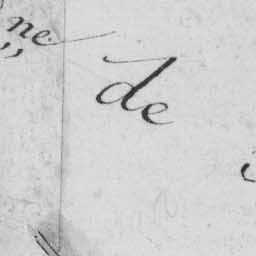 ne
de